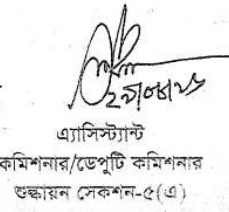 এ্যাসিস্ট্যান্ট
কমিশনার/ডেপুটি কমিশনার
শুল্কায়ন সেকশন-৫(এ)